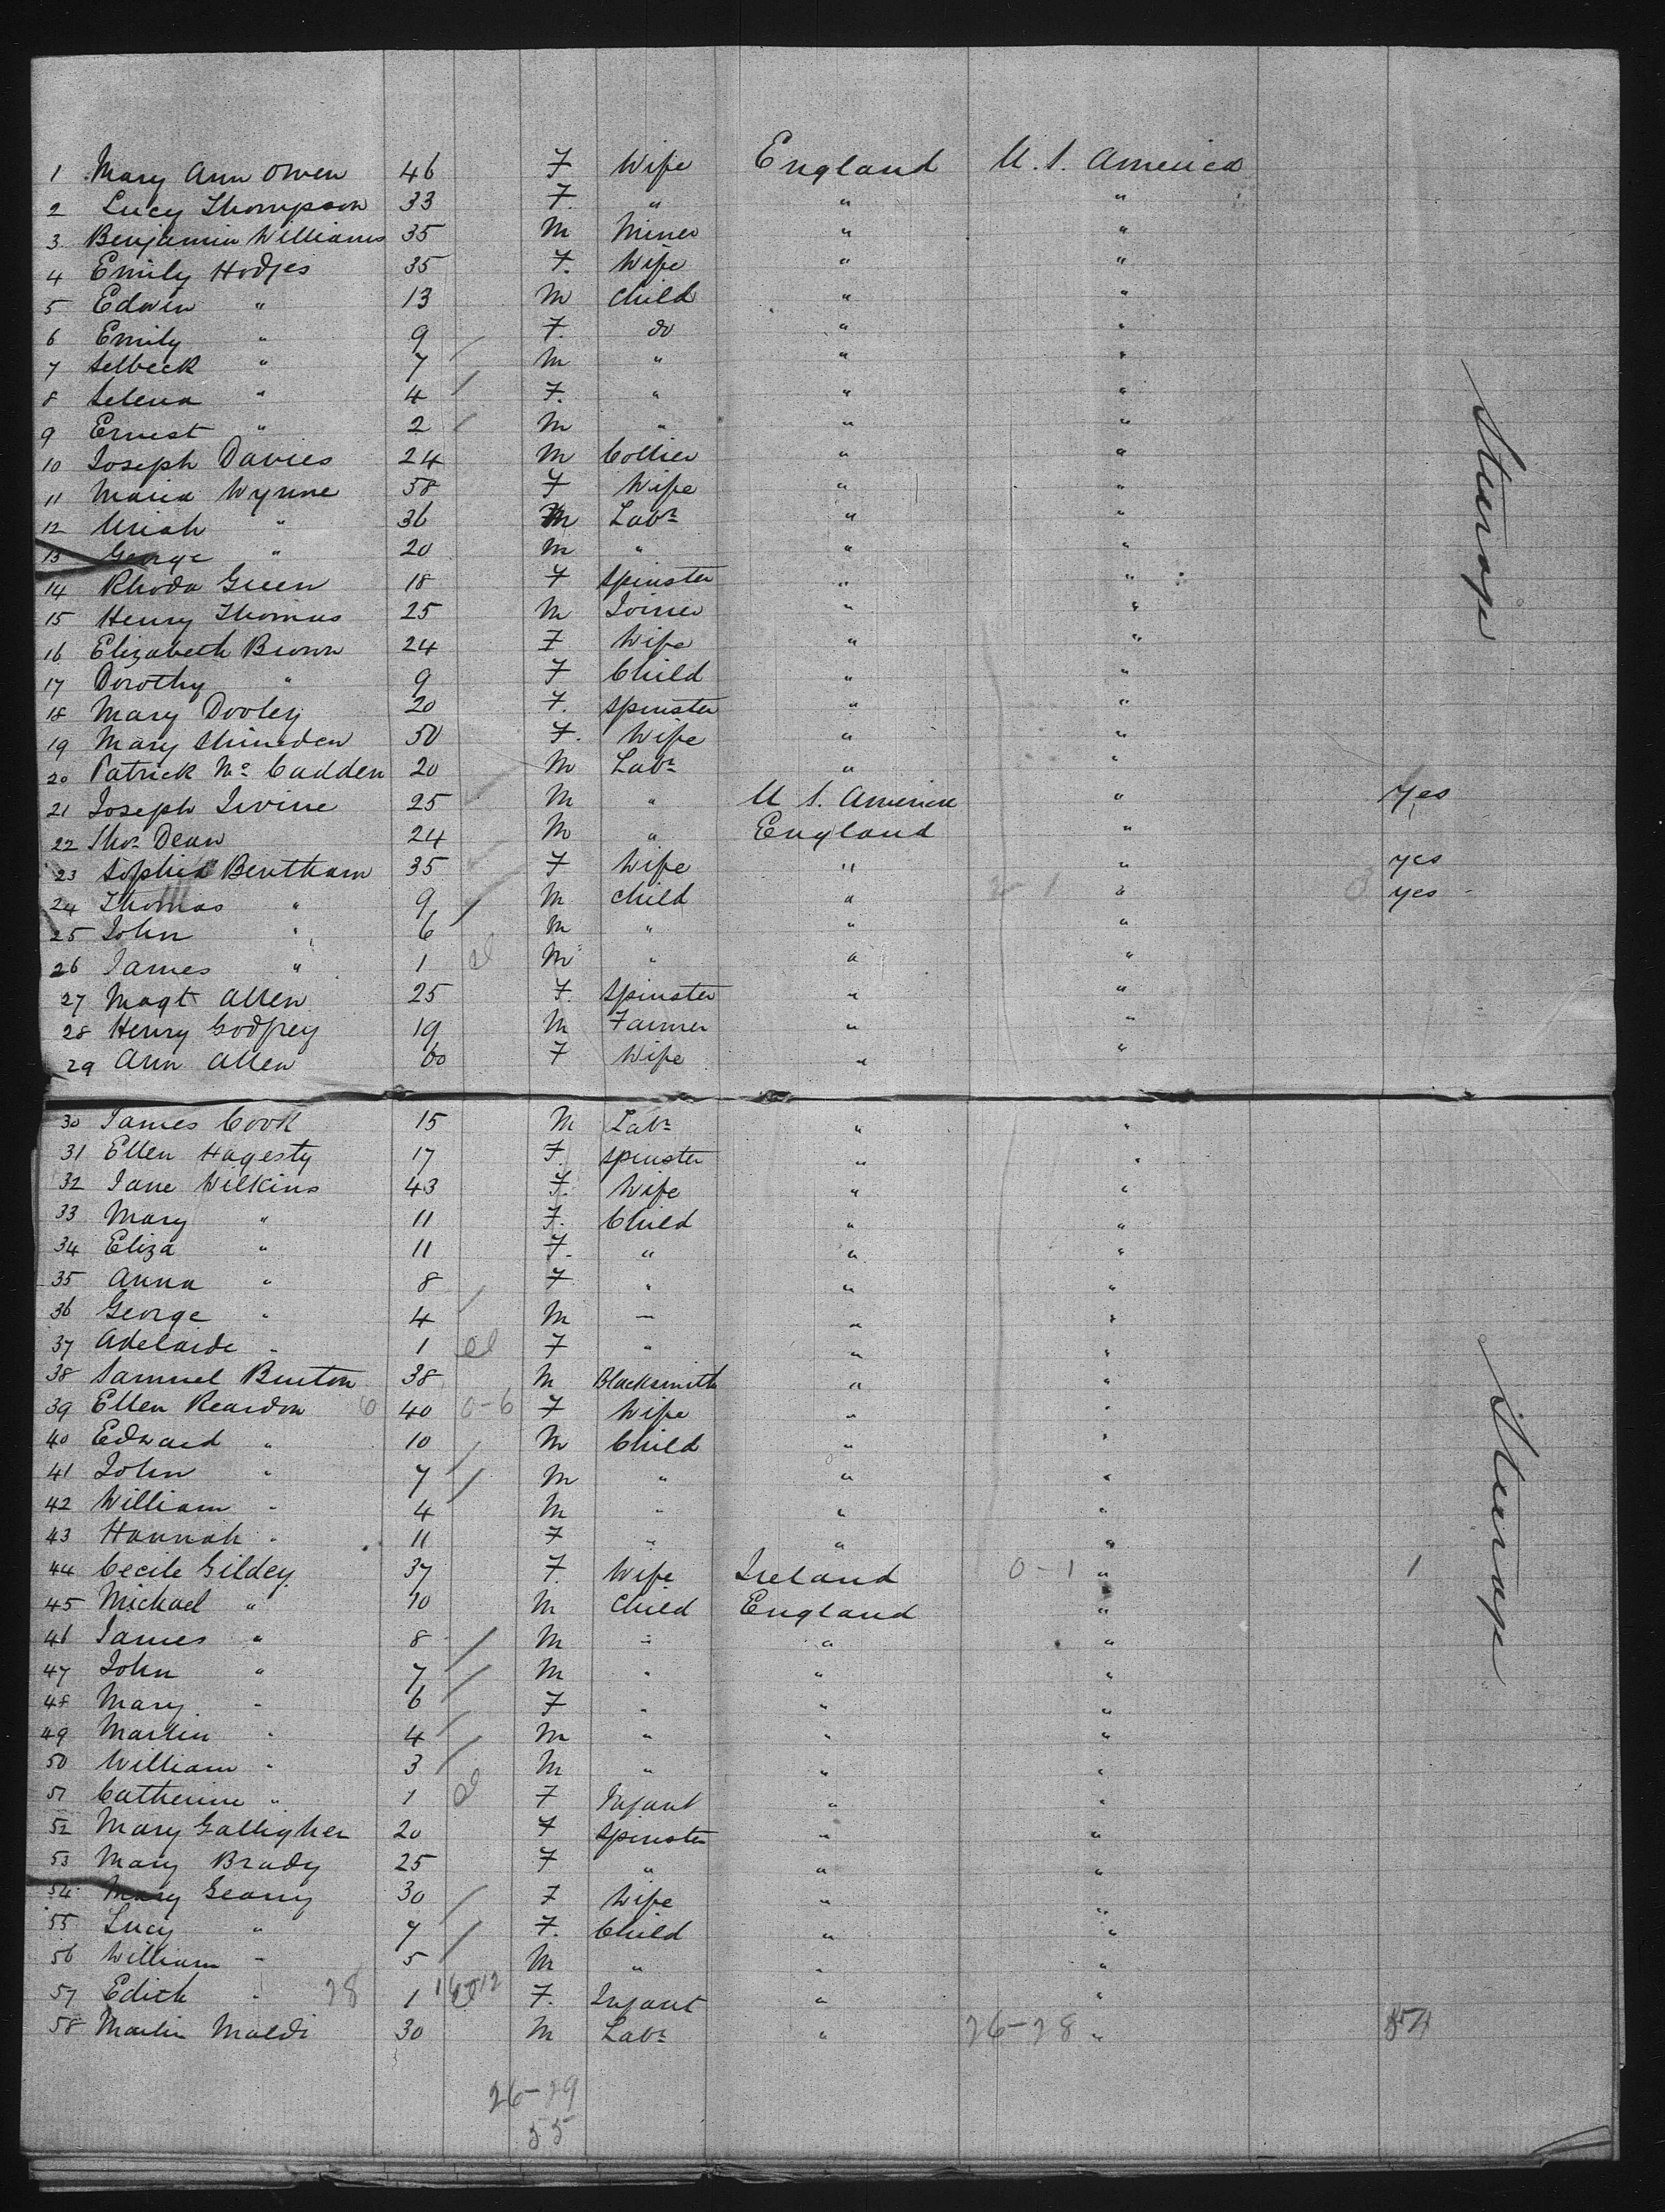 1 Mary Ann Owen 46 F Wife England U.S. America
2 Lucy Thompson 33 F. " " "
3 Benjamin Williams 35 M Miner " "
4 Emily Hodges 35 F. Wife " "
5 Edwin " 13 M Child " "
6 Emily " 9 F. do " "
7 Selbeck " 7 M " " "
8 Selena " 4 F. " " "
9 Ernest " 2 M " " "
10 Joseph Davies 24 M Collier " "
11 Maria Wynne 58 F Wife " "
12 Uriah " 36 M Labr " "
13 George " 20 M " " "
14 Rhoda Green 18 F Spinster " "
15 Henry Thomas 25 M Joiner " "
16 Elizabeth Brown 24 F Wife " "
17 Dorothy " 9 F Child " "
18 Mary Dooley 20 F. Spinster " "
19 Mary 50 F. Wife " "
20 Patrick Mc Cadden 20 M Labr " "
21 Joseph Irvine 25 M " U S. America " Yes
22 Thos Dean 24 M " England "
23 Sophia Bentham 35 F Wife " " yes
24 Thomas " 9 M Child " " yes
25 John " 6 M " " "
26 James " 1 M " " "
27 Magt Allen 25 F. Spinster " "
28 Henry Godfrey 19 M Farmer " "
29 Ann Allen 60 F Wife " "
30 James Cook 15 M Labr " "
31 Ellen Hagesty 17 F. Spinster " "
32 Jane Wilkins 43 F. Wife " "
33 Mary " 11 F. Child " "
34 Eliza " 11 F. " " "
35 Anna " 8 F " " "
36 George " 4 M " " "
37 Adelaide " 1 F " " "
38 Samuel Burton 38 M Blacksmith " "
39 Ellen Reardon 6 40 0-6 F Wife " "
40 Edward " 10 M Child " "
41 John " 7 M " " "
42 William " 4 M " " "
43 Hannah " 11 F " " "
44 Cecile Gildey 37 F. Wife Ireland 0-1 " 1
45 Michael " 10 M Child England "
46 James " 8 M " " "
47 John " 7 M " " "
48 Mary " 6 F " " "
49 Martin " 4 M " " "
50 William " 3 M " " "
51 Catherine " 1 F Infant " "
52 Mary Galligher 20 F Spinster " "
53 Mary Brady 25 F " " "
54 Mary Geany 30 F Wife " "
55 Lucy " 7 F. Child " "
56 William " 5 M " " "
57 Edith " 28 1 F. Infant " "
58 Martin Maldi 30 M Labr " 26-28 " 54
26-29
55
Steerage
Steerage